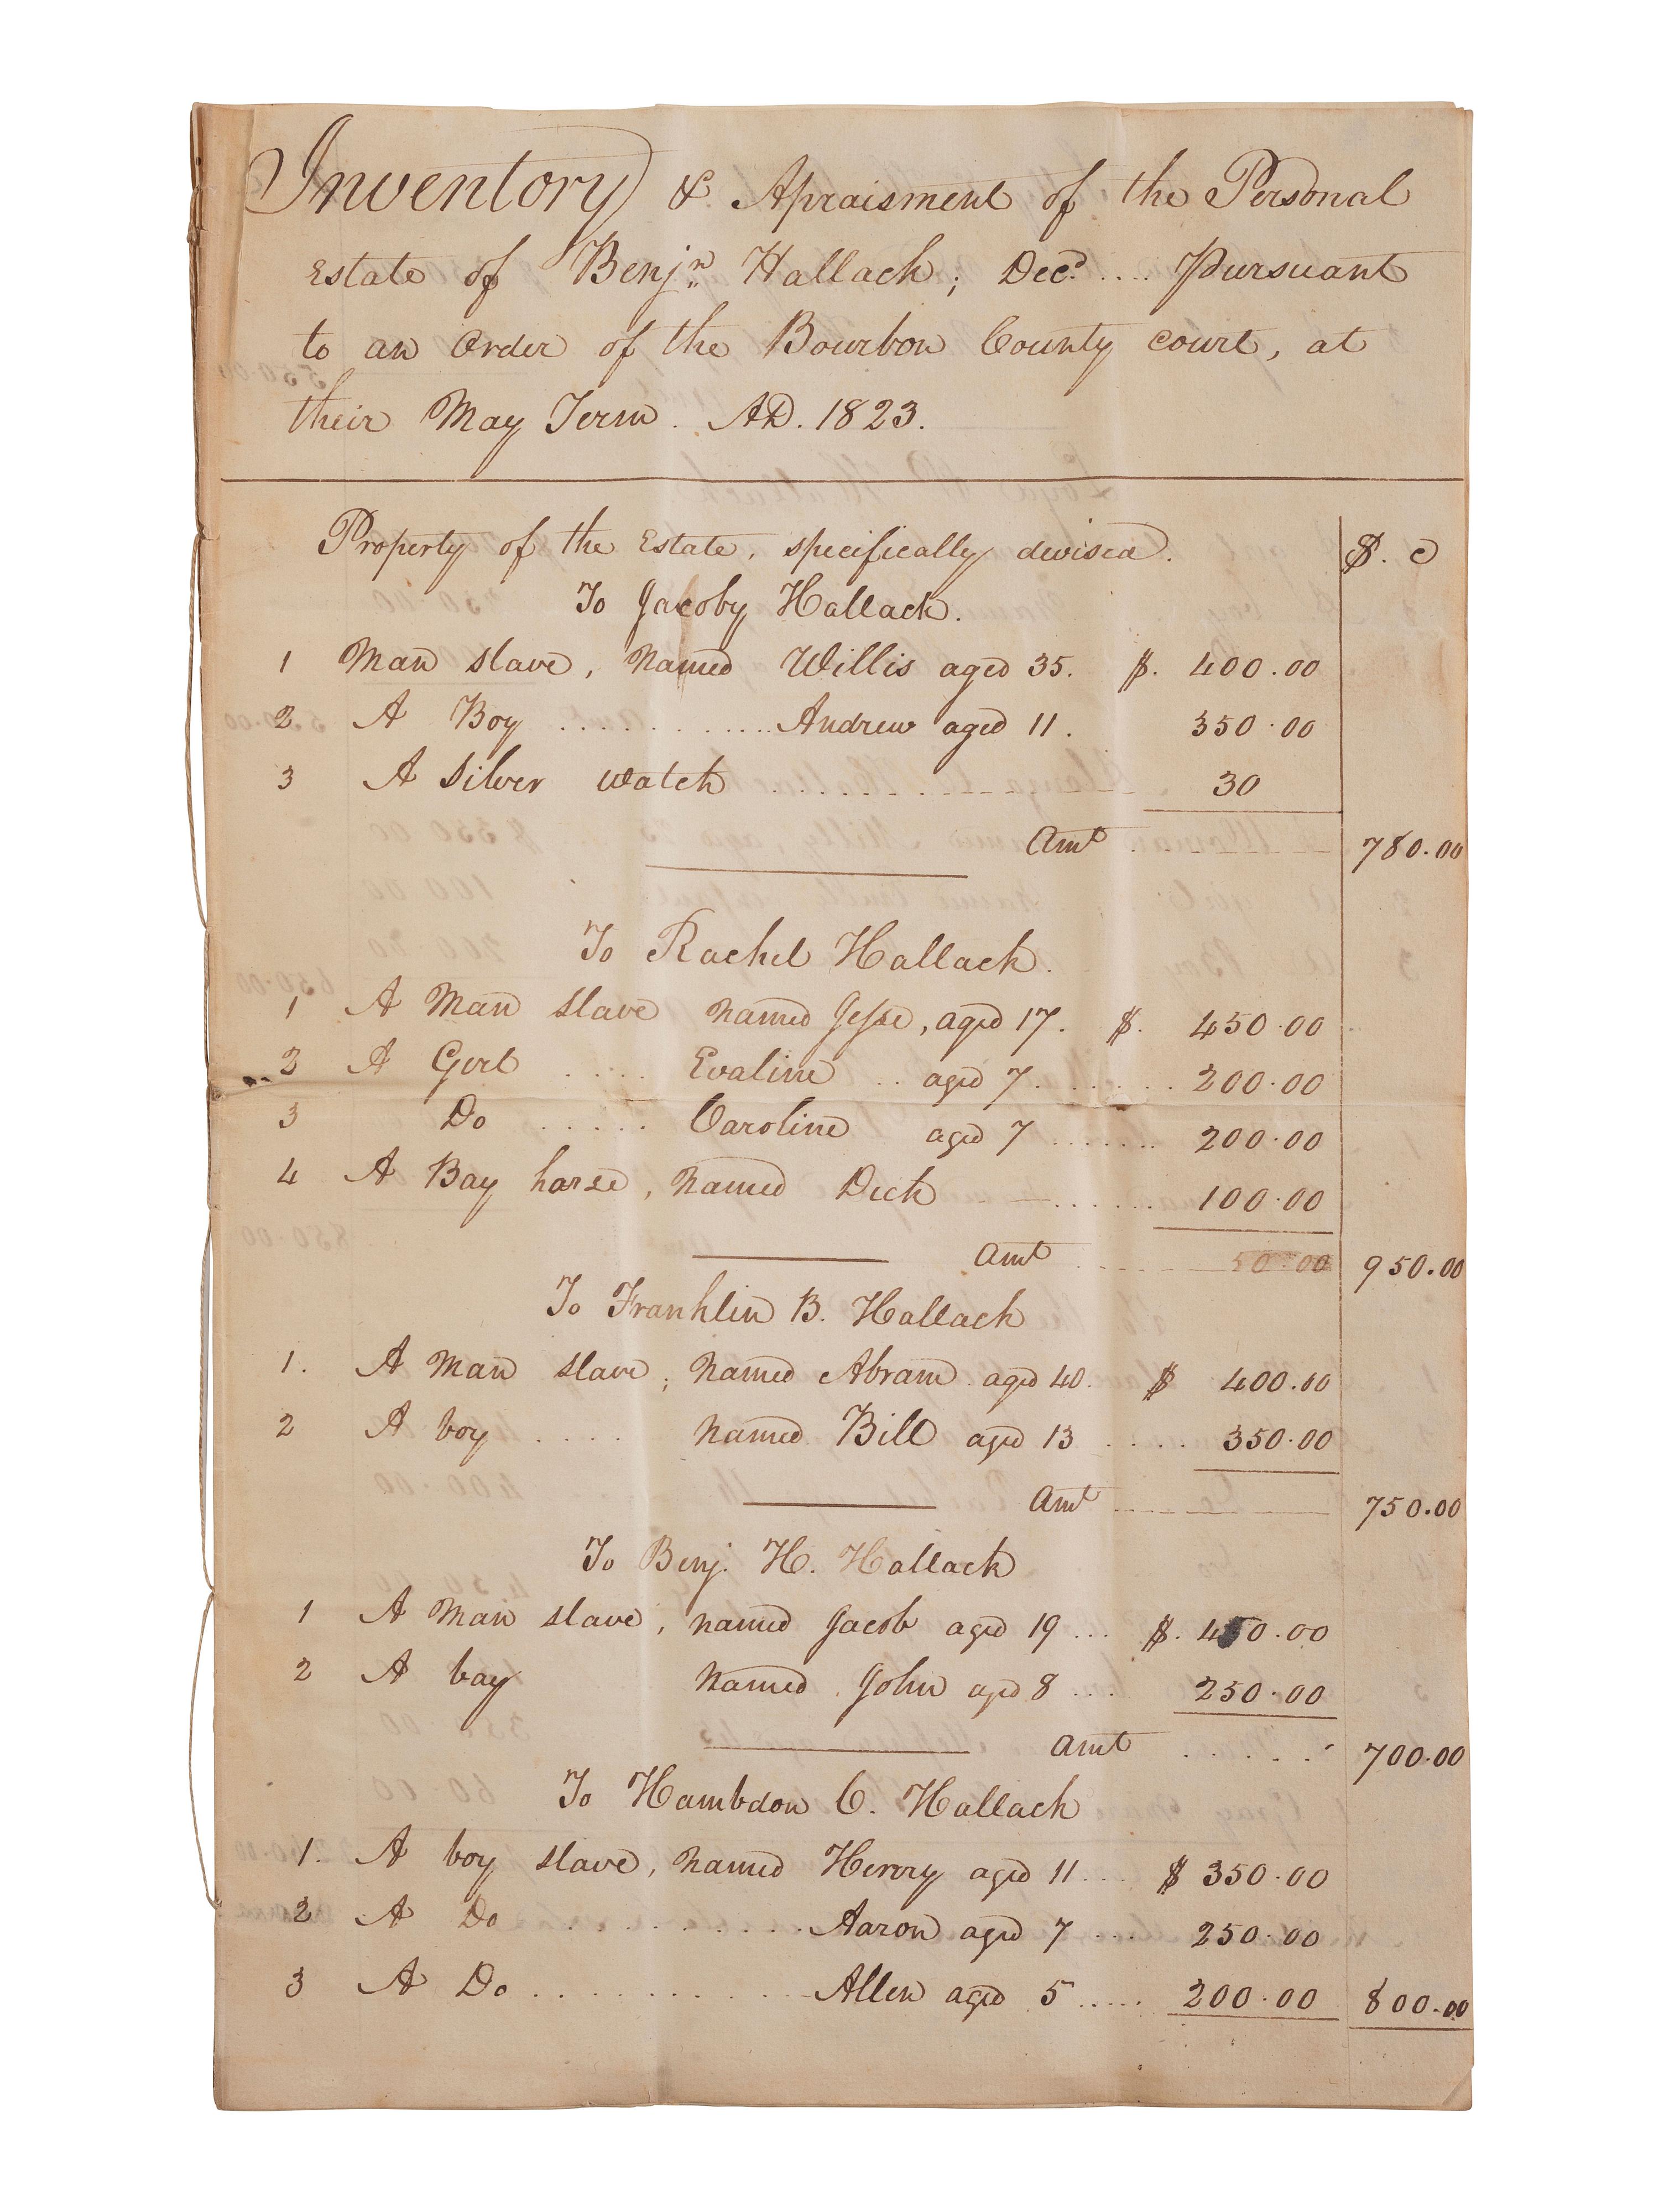 Inventory & Apraisment of the Personal
Estate of Benjn Hallack; Decd .... Pursuant
to an Order of the Bourbon County court, at
their May Term. AD. 1823.
Property of the Estate, specifically devised. $. c
To Jacoby Hallack.
1 Man slave, Named Willis aged 35. $. 400.00
2 A Boy ........... Andrew aged 11. 350.00
3 A Silver watch ........... 30
Amt 780.00
To Rachel Hallack.
1 A Man slave named Jesse, aged 17. $. 450.00
2 A Girl ..... Evaline .. aged 7. ...... 200.00
3 Do ..... Caroline aged 7 ...... 200.00
4 A Bay horse, named Dick ...... 100.00
Amt ...... 50.00 950.00
To Franklin B. Hallack
1. A Man slave; named Abram aged 40. $ 400.00
2 A boy .... named Bill aged 13 .... 350.00
Amt 750.00
To Benj. H. Hallack
1 A Man slave, named Jacob aged 19 ... $. 450.00
2 A boy named John aged 8 ... 250.00
Amt ...... 700.00
To Hambdon C. Hallack
1. A boy slave, named Henry aged 11... $ 350.00
2 A Do .......... Aaron aged 7 .... 250.00
3 A Do ........... Allen aged 5 ..... 200.00 800.00